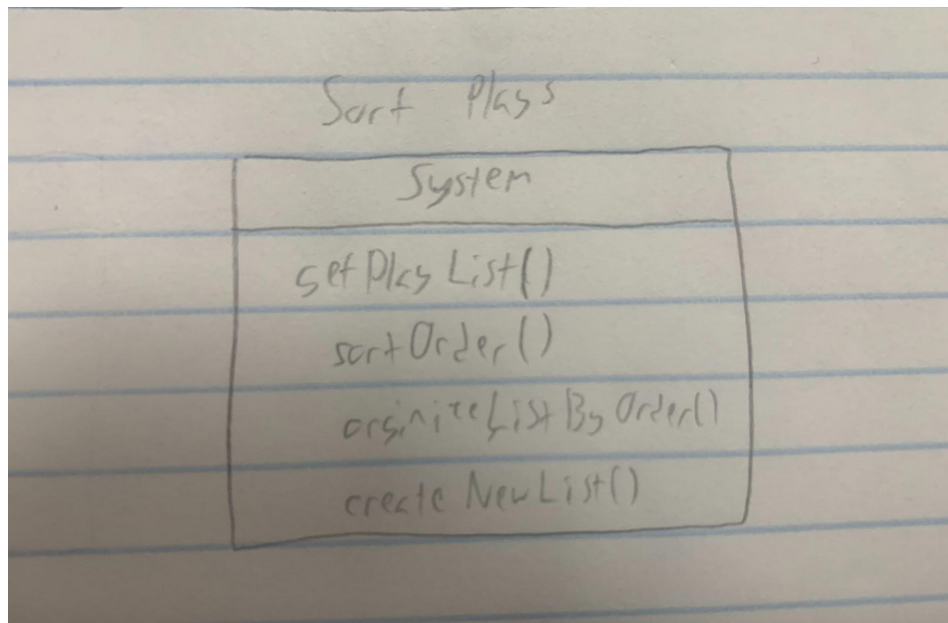 Sort Plays
System
setPlayList()
sortOrder()
orginizeListByOrder()
createNewList()